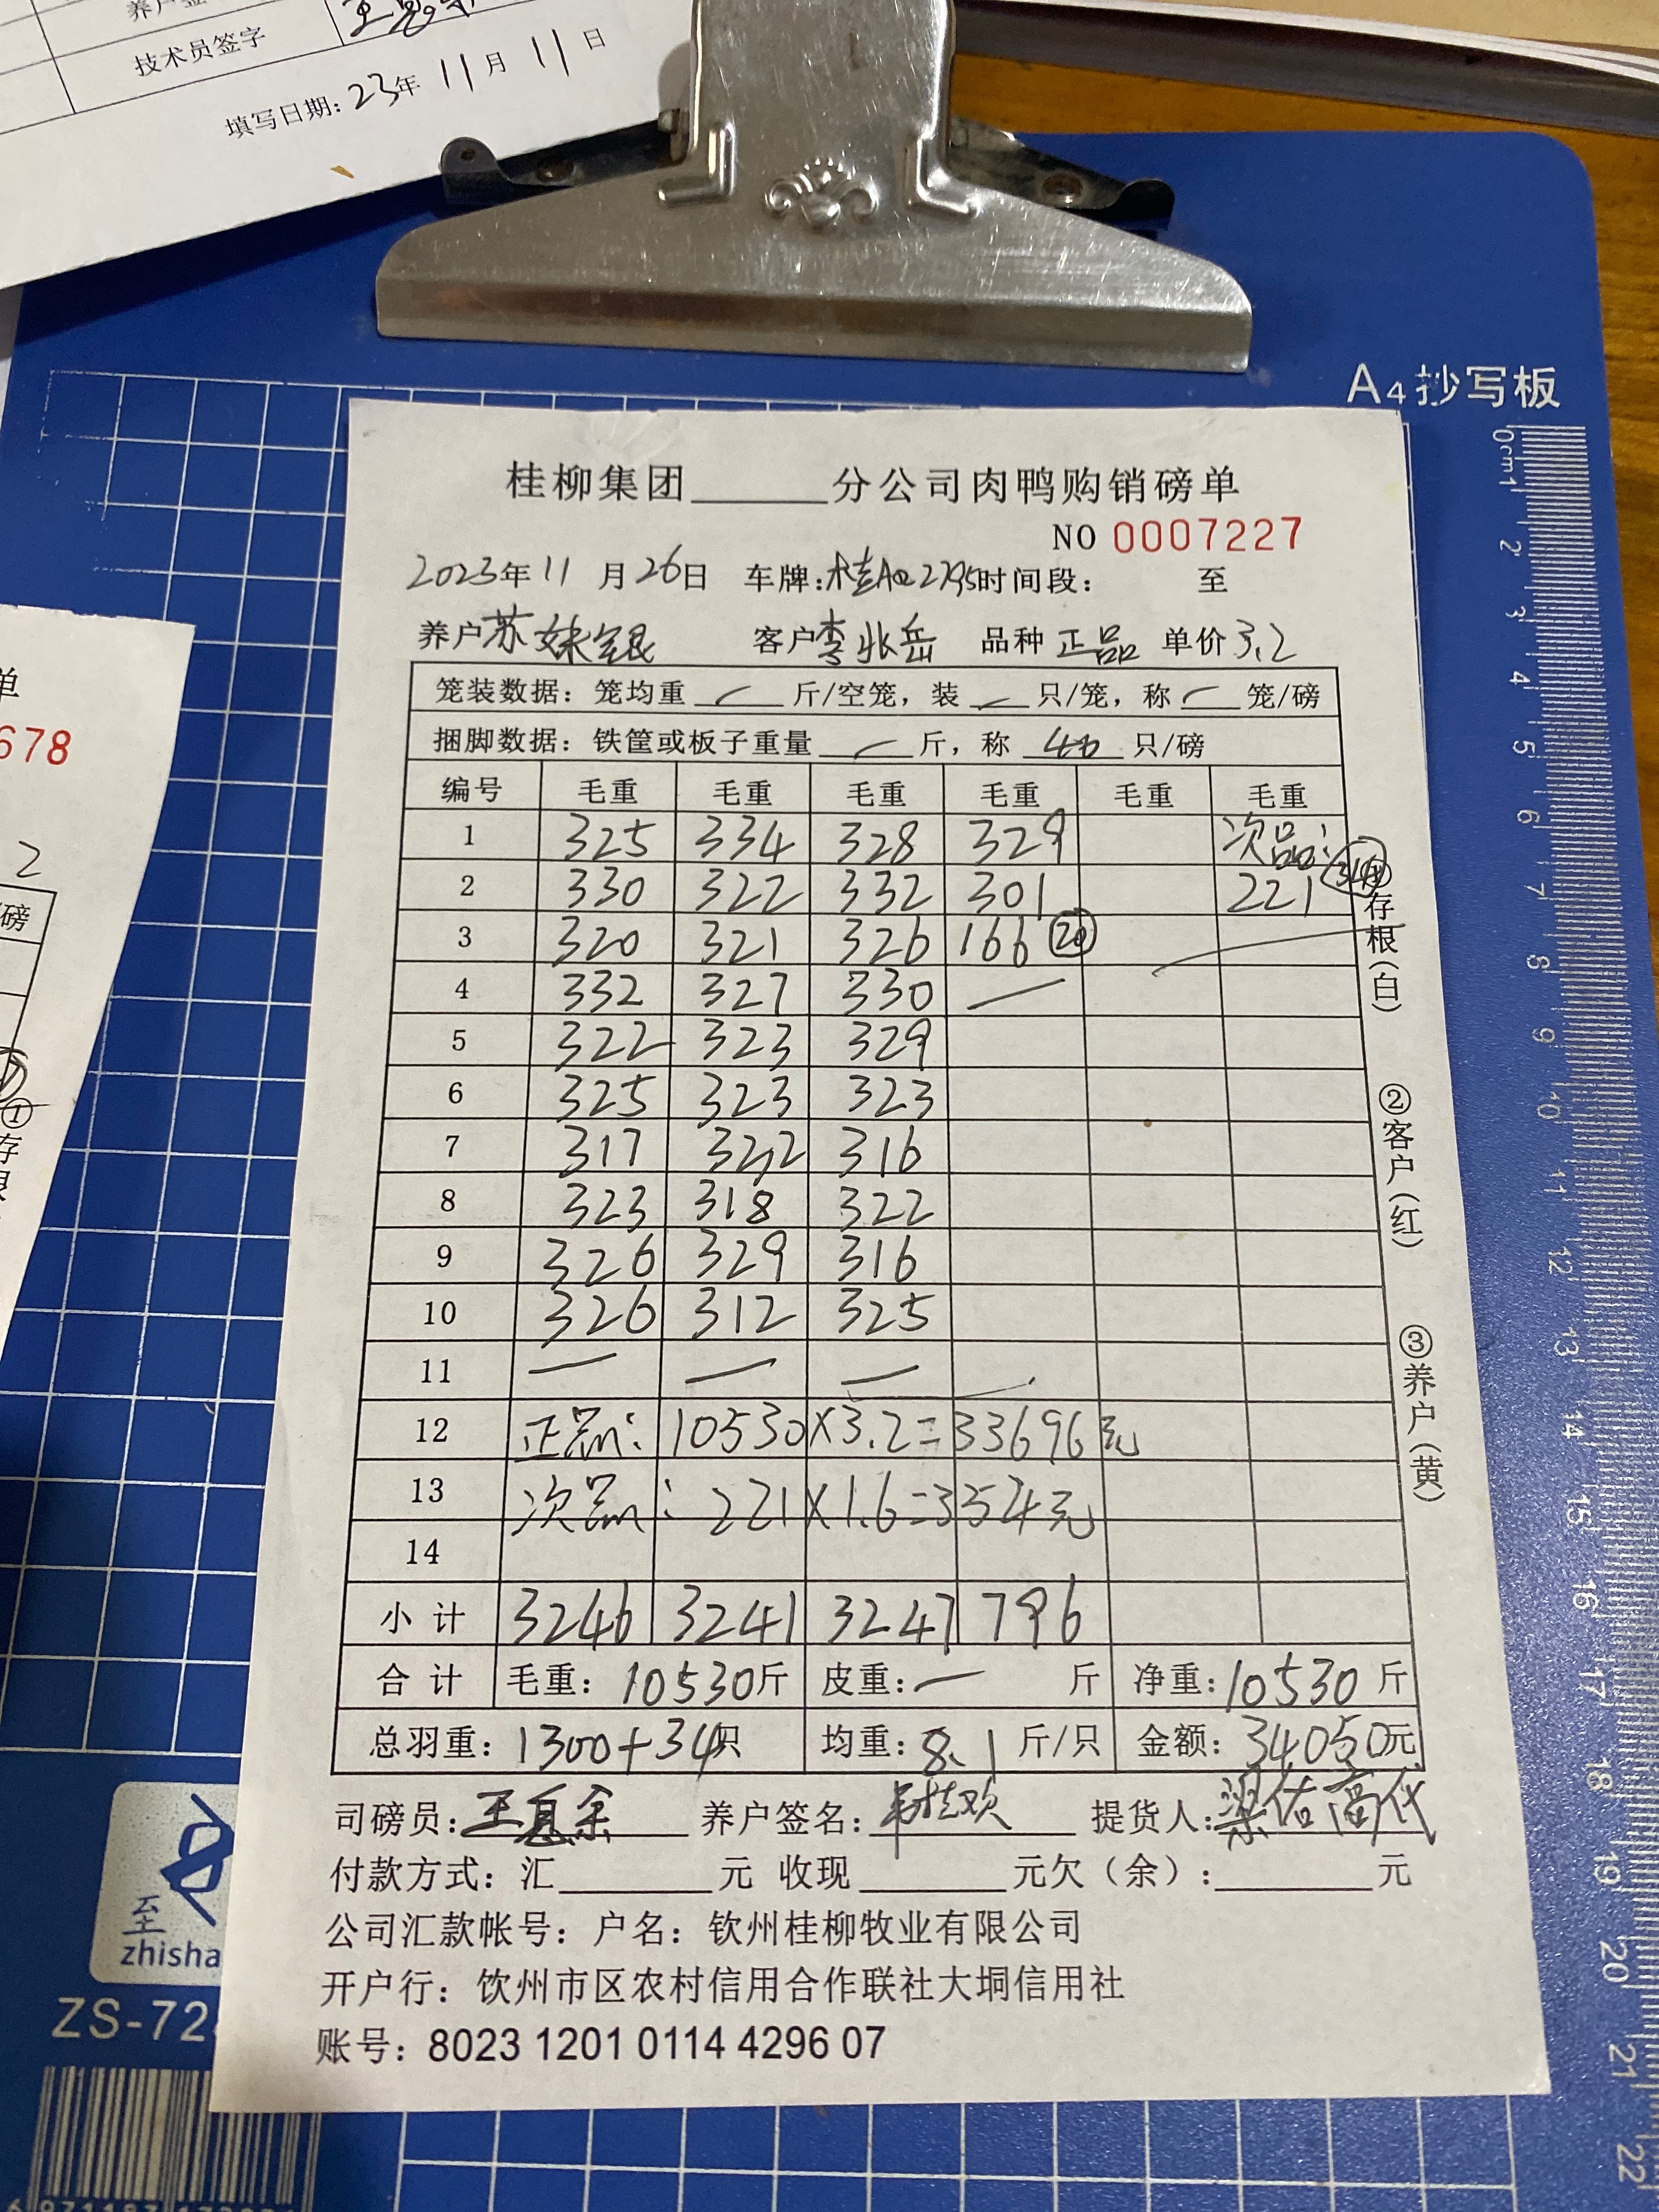 技术员签字
填写日期:23年 11月 11日
A4抄写板
桂柳集团______分公司肉鸭购销磅单
NO 0007227
2023年 11 月 26日 车牌: 时间段: 至
养户 苏妹银 客户 李兆岳 品种 正品 单价 3.2
笼装数据: 笼均重 斤/空笼, 装 只/笼, 称 笼/磅
捆脚数据: 铁筐或板子重量 斤, 称 40 只/磅
编号 毛重 毛重 毛重 毛重 毛重 毛重
1 325 334 328 329 次品:
2 330 322 332 301 221
3 320 321 326 166 20
4 332 327 330 —
5 322 323 329
6 325 323 323
7 317 322 316
8 323 318 322
9 326 329 316
10 326 312 325
11 — — — —
12 正品: 10530×3.2=33696元
13 次品: 221×1.6=354元
14
小计 3246 3241 3247 796
合计 毛重: 10530斤 皮重: — 斤 净重: 10530 斤
总羽重: 1300+34只 均重: 8.1 斤/只 金额: 34050元
司磅员: 养户签名: 提货人:
付款方式: 汇______元 收现______元欠(余):______元
公司汇款帐号: 户名: 钦州桂柳牧业有限公司
开户行: 饮州市区农村信用合作联社大垌信用社
账号: 8023 1201 0114 4296 07
存根(白)
②客户(红)
③养户(黄)
单
678
2
磅
①存
至
zhisha
ZS-72
0cm1
2
3
4
5
6
7
8
9
10
11
12
13
14
15
16
17
18
19
20
21
22